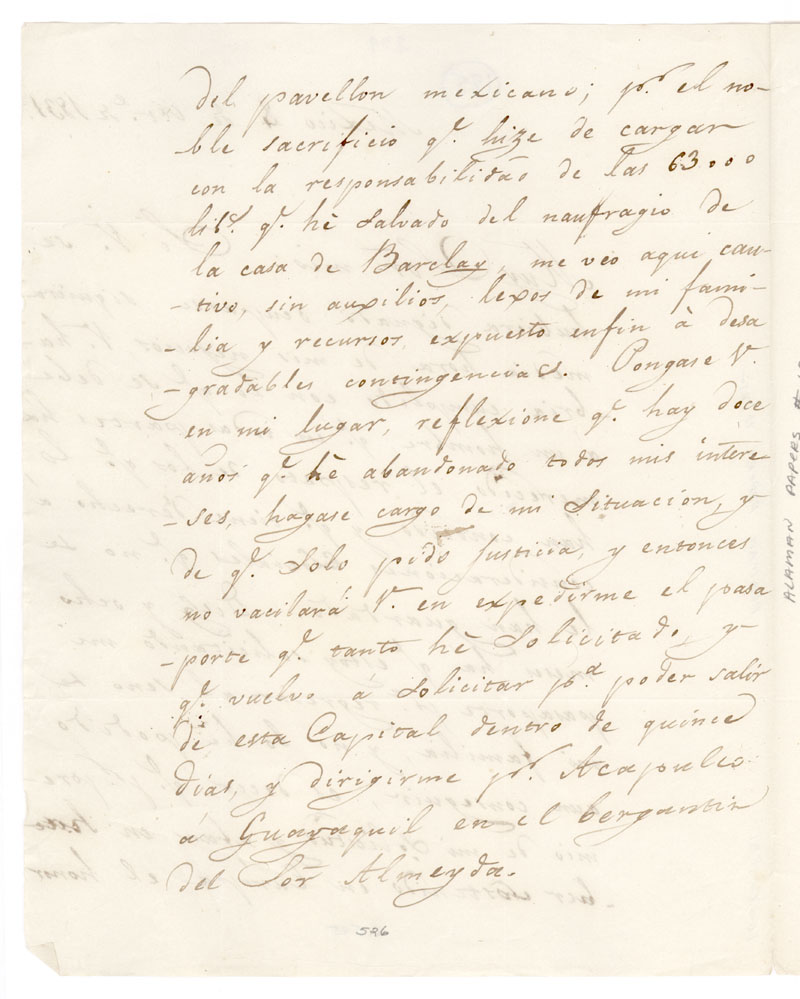 del pavellon mexicano; pr. el no-
-ble sacrificio q.e hize de cargar
con la responsabilidão de las 63000
lib.s q.e hè salvado del naufragio de
la casa de Barclay, me veo aqui cau-
-tivo, sin auxilios, lexos de mi fami-
-lia y recursos, expuesto enfin à desa
-gradables contingencias. Pongase V.
en mi lugar, reflexione q.e hay doce
años q.e hè abandonado todos mis intere
-ses, hagase cargo de mi situación, y
de q.e solo pido justicia, y entonces
no vacilará V. en expedirme el pasa
-porte q.e tanto hè solicitado, y
q.e vuelvo á solicitar p.a poder salir
de esta Capital dentro de quince
días, y dirigirme pr. Acapulco
á Guayaquil en el bergantin
del Sor Almeyda.
526
ALAMAN PAPERS